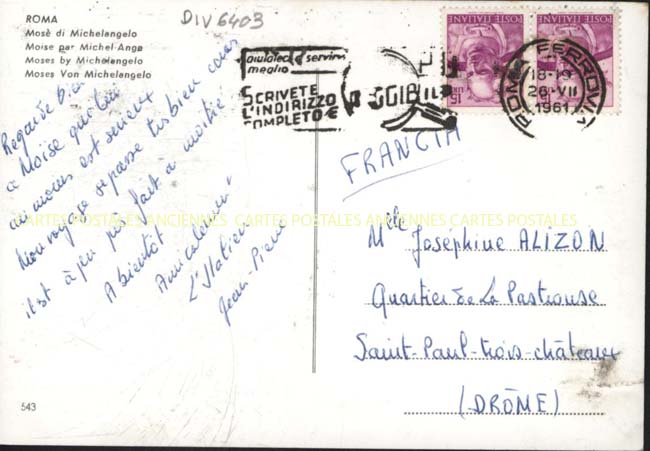 ROMA
Mosè di Michelangelo
Moise par Michel-Ange
Moses by Michelangelo
Moses Von Michelangelo
DIV 6403
POSTE ITALIANE
POSTE ITALIANE
15
15
aiutateci a servirvi
meglio
SCRIVETE
L'INDIRIZZO
COMPLETO E
ROMA FERROVIA
18-19
26-VII
1961
FRANCIA
Regarde bien
ce Moise qui lui
au moins est sérieux
Mon voyage se passe très bien mais
il est à peu près fait à moitié
A bientôt
Amicalement
L'Italien
Jean-Pierre
CARTES POSTALES ANCIENNES CARTES POSTALES ANCIENNES CARTES POSTALES
Mlle Joséphine ALIZON
Quartier de La Pastrouse
Saint-Paul-trois-châteaux
(DRÔME)
543